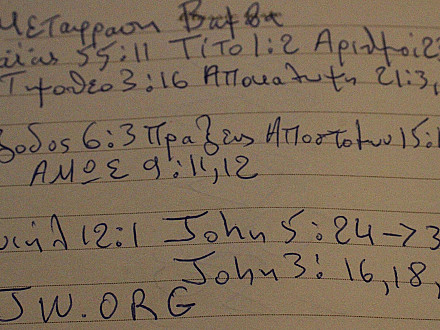 Μετάφραση
αΐας 55:11 Τίτο 1:2 Αριθμοί 23
Τιμόθεο 3:16 Αποκαλυψη 21:3,
ξοδος 6:3 Πράξεις Αποστολων 15:1
ΑΜΩΣ 9:11,12
ιήλ 12:1 John 5:24→3
John 3: 16,18,
JW.ORG